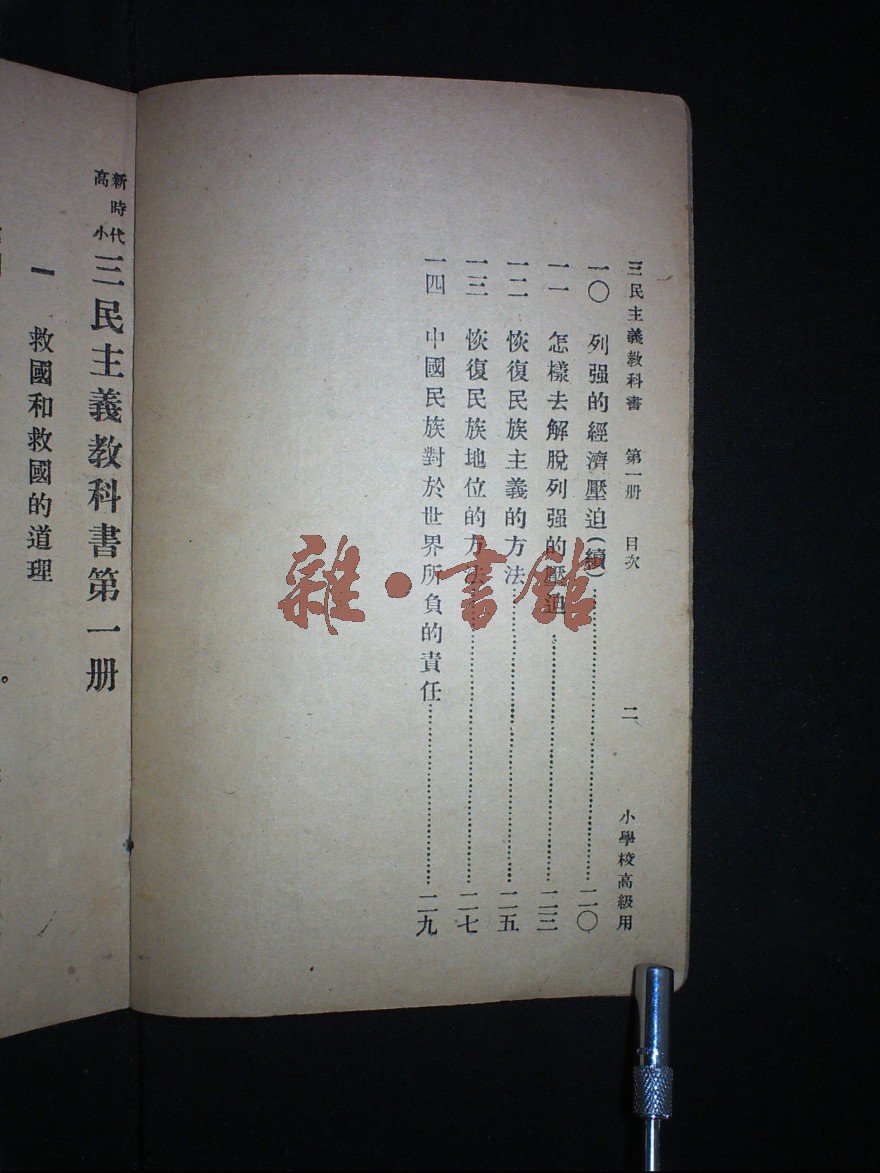 三民主義教科書 第一册 目次 二 小學校高級用
一〇 列强的經濟壓迫(續)……二〇
一一 怎樣去解脫列强的壓迫……二三
一二 恢復民族主義的方法……二五
一三 恢復民族地位的方法……二七
一四 中國民族對於世界所負的責任……二九
新時代
高小
三民主義教科書第一册
一 救國和救國的道理
雜·書館